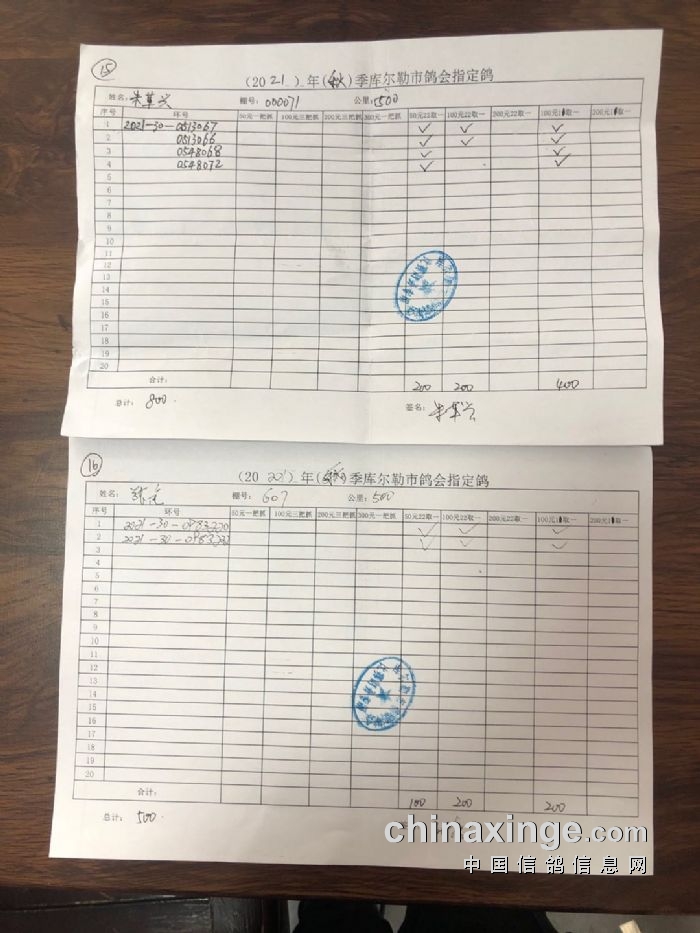 15
(2021)年(秋)季库尔勒市鸽会指定鸽
姓名: 朱草兴 棚号: 000071 公里: 500
序号 环号 50元一把抓 100元三把抓 200元三把抓 300元一把抓 50元22取一 100元22取一 200元22取一 100元10取一 200元10取一
1 2021-30-0513067 ✓ ✓ ✓
2 0513066 ✓ ✓ ✓
3 0548068 ✓ ✓
4 0548072 ✓ ✓
5
6
7
8
9
10
11
12
13
14
15
16
17
18
19
20
合计: 200 200 400
总计: 800 签名:
16
(2021)年(秋)季库尔勒市鸽会指定鸽
姓名: 棚号: 607 公里: 500
序号 环号 50元一把抓 100元三把抓 200元三把抓 300元一把抓 50元22取一 100元22取一 200元22取一 100元10取一 200元10取一
1 2021-30-0983200 ✓ ✓ ✓
2 2021-30-0983222 ✓ ✓ ✓
3
4
5
6
7
8
9
10
11
12
13
14
15
16
17
18
19
20
合计: 100 200 200
总计: 500
chinaxinge.com
中国信鸽信息网